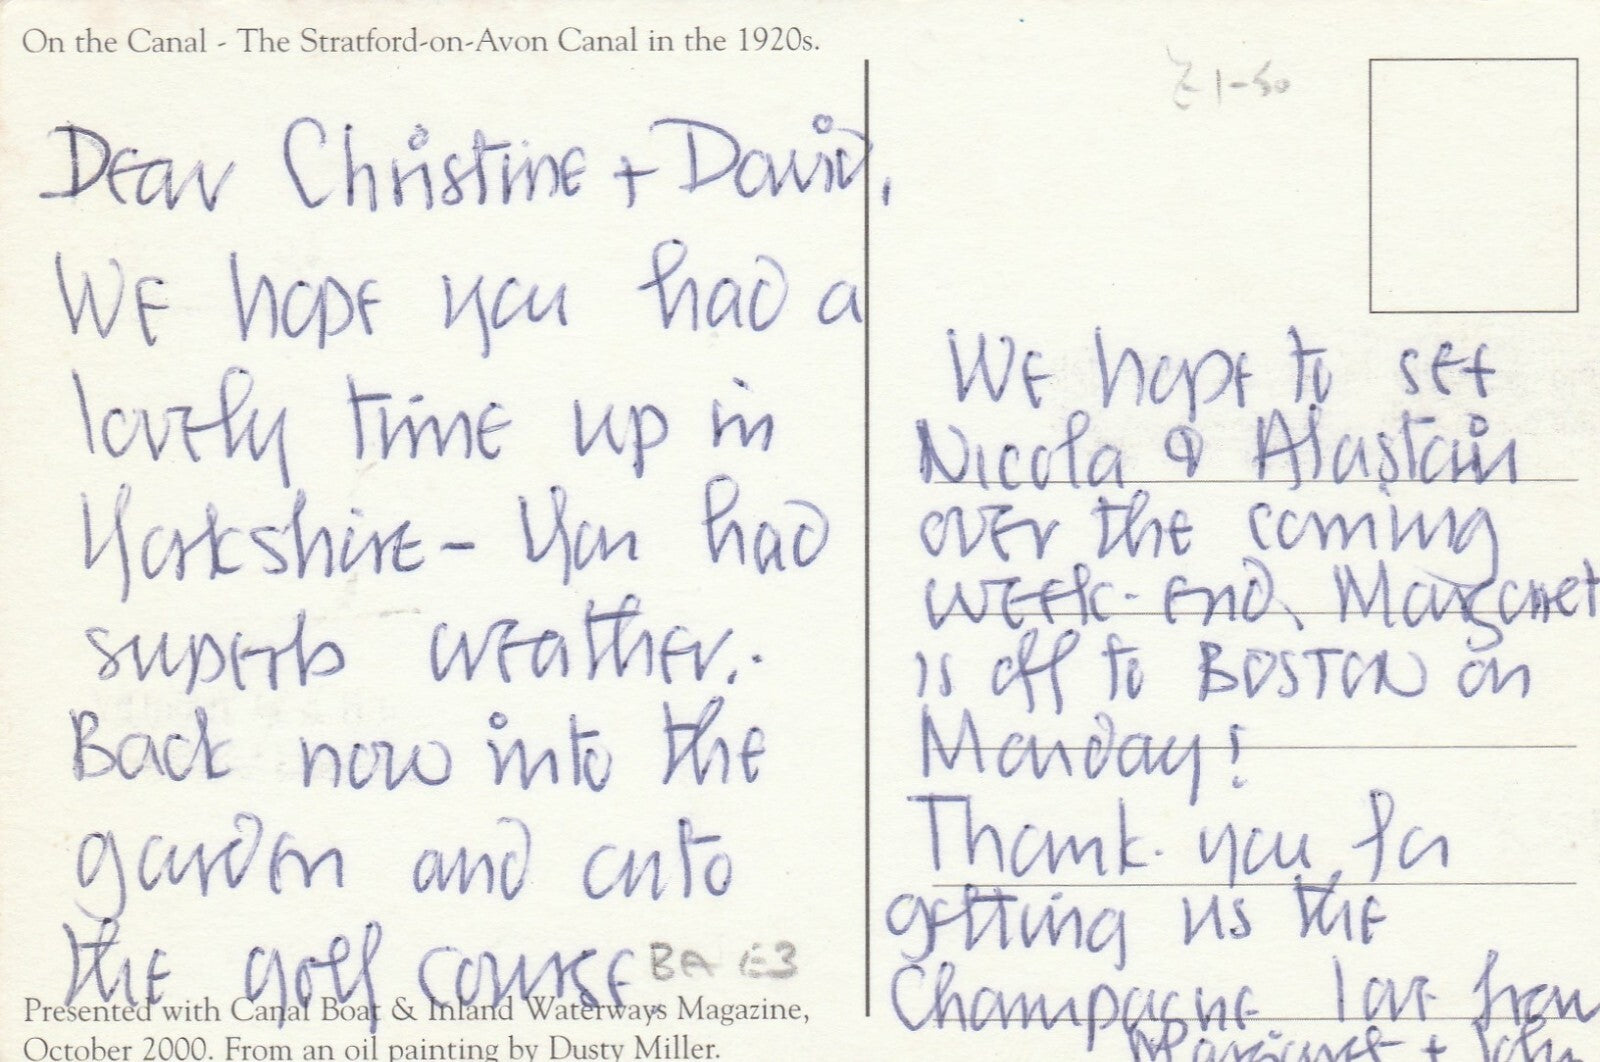 On the Canal - The Stratford-on-Avon Canal in the 1920s.
£1-50
Dear Christine + David,
We hope you had a
lovely time up in
Yorkshire - You had
superb weather.
Back now into the
garden and onto
the golf course
BA £3
Presented with Canal Boat & Inland Waterways Magazine,
October 2000. From an oil painting by Dusty Miller.
We hope to see
Nicola & Alastair
over the coming
week-end, Margaret
is off to BOSTON on
Monday!
Thank you for
getting us the
Champagne love from
Margaret + John